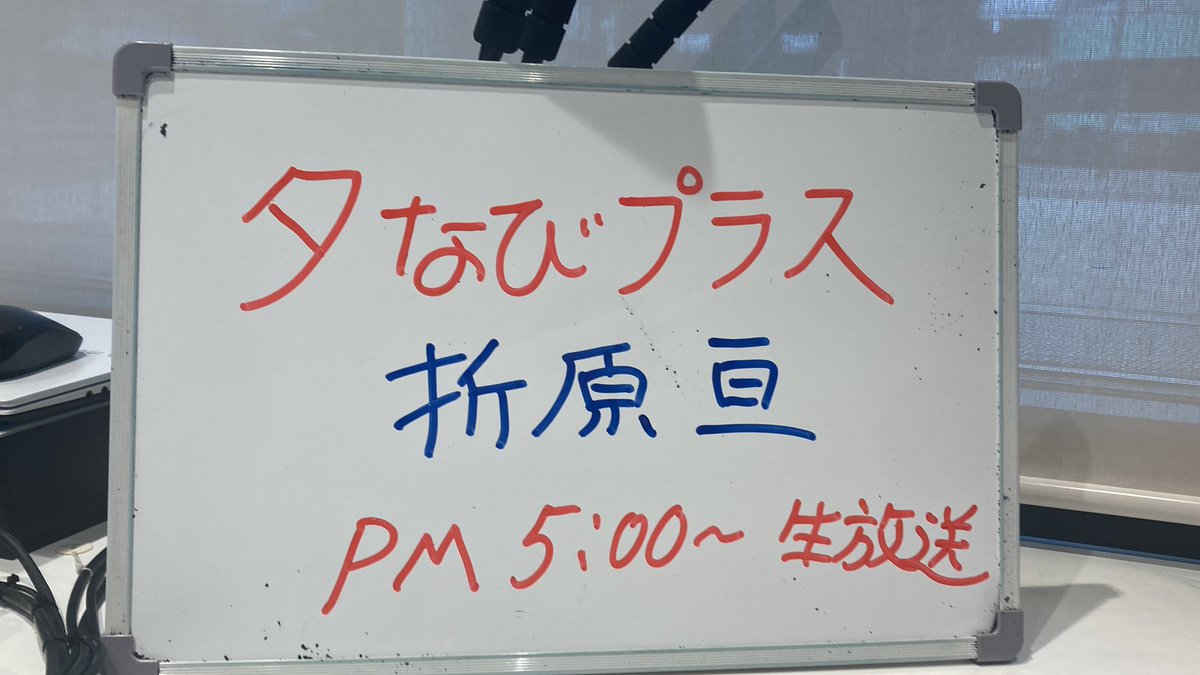 夕なびプラス
折原亘
PM 5:00～ 生放送